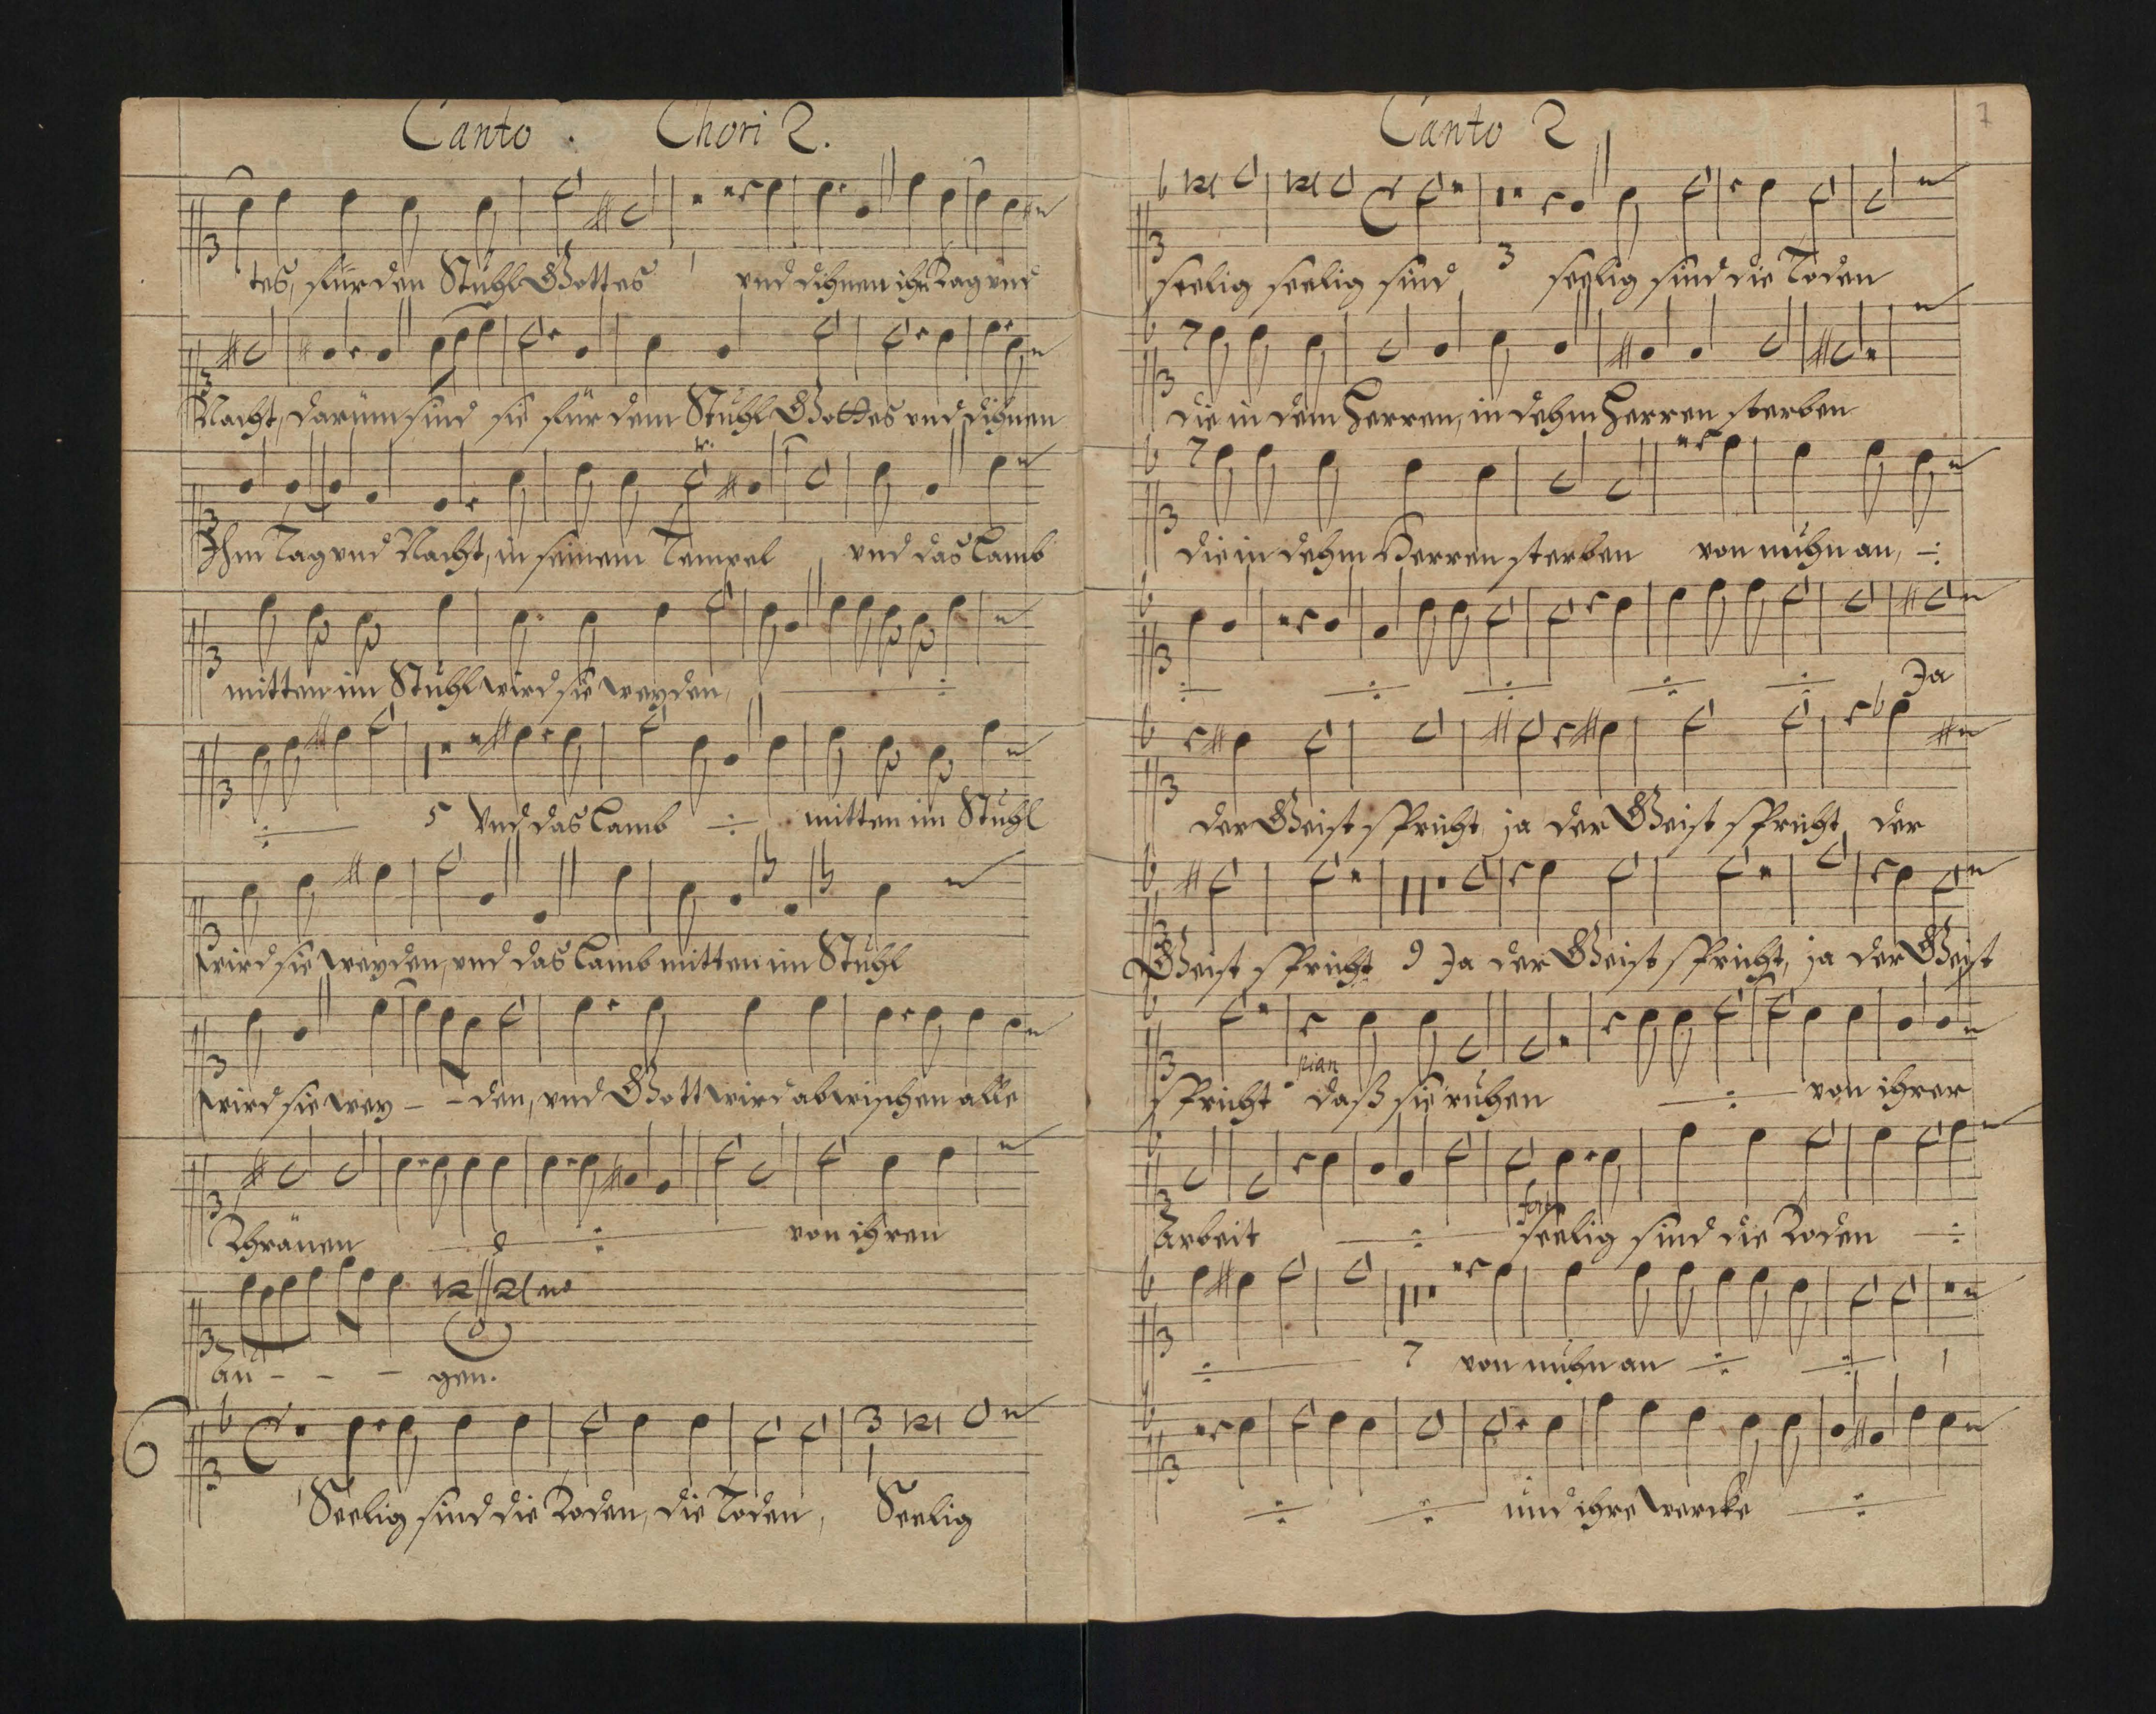 Canto. Chori 2.
tes, für den Stuhl Gottes und dihnen ihm Tag und
Nacht, darum sind sie für dem Stuhl Gottes und dihnen
Ihm Tag und Nacht, in seinem Tempel und das Lamb
mitten im Stuhl wird sie weyden,
5 Und das Lamb mitten im Stuhl
wird sie weyden, und das Lamb mitten im Stuhl
wird sie wey - - den, und Gott wird abwischen alle
Thränen von ihren
Au - - - gen.
6
Seelig sind die Toden, die Toden, Seelig
Canto 2
7
seelig seelig sind 3 seelig sind die Toden
die in dem Herren, in dehm Herren sterben
die in dehm Herren sterben von nuhn an,
Ja
der Geist spricht, ja der Geist spricht der
Geist spricht 9 Ja der Geist spricht, ja der Geist
pian
spricht daß sie ruhen von ihrer
fort
Arbeit seelig sind die Toden
7 von nuhn an 1
und ihre wercke